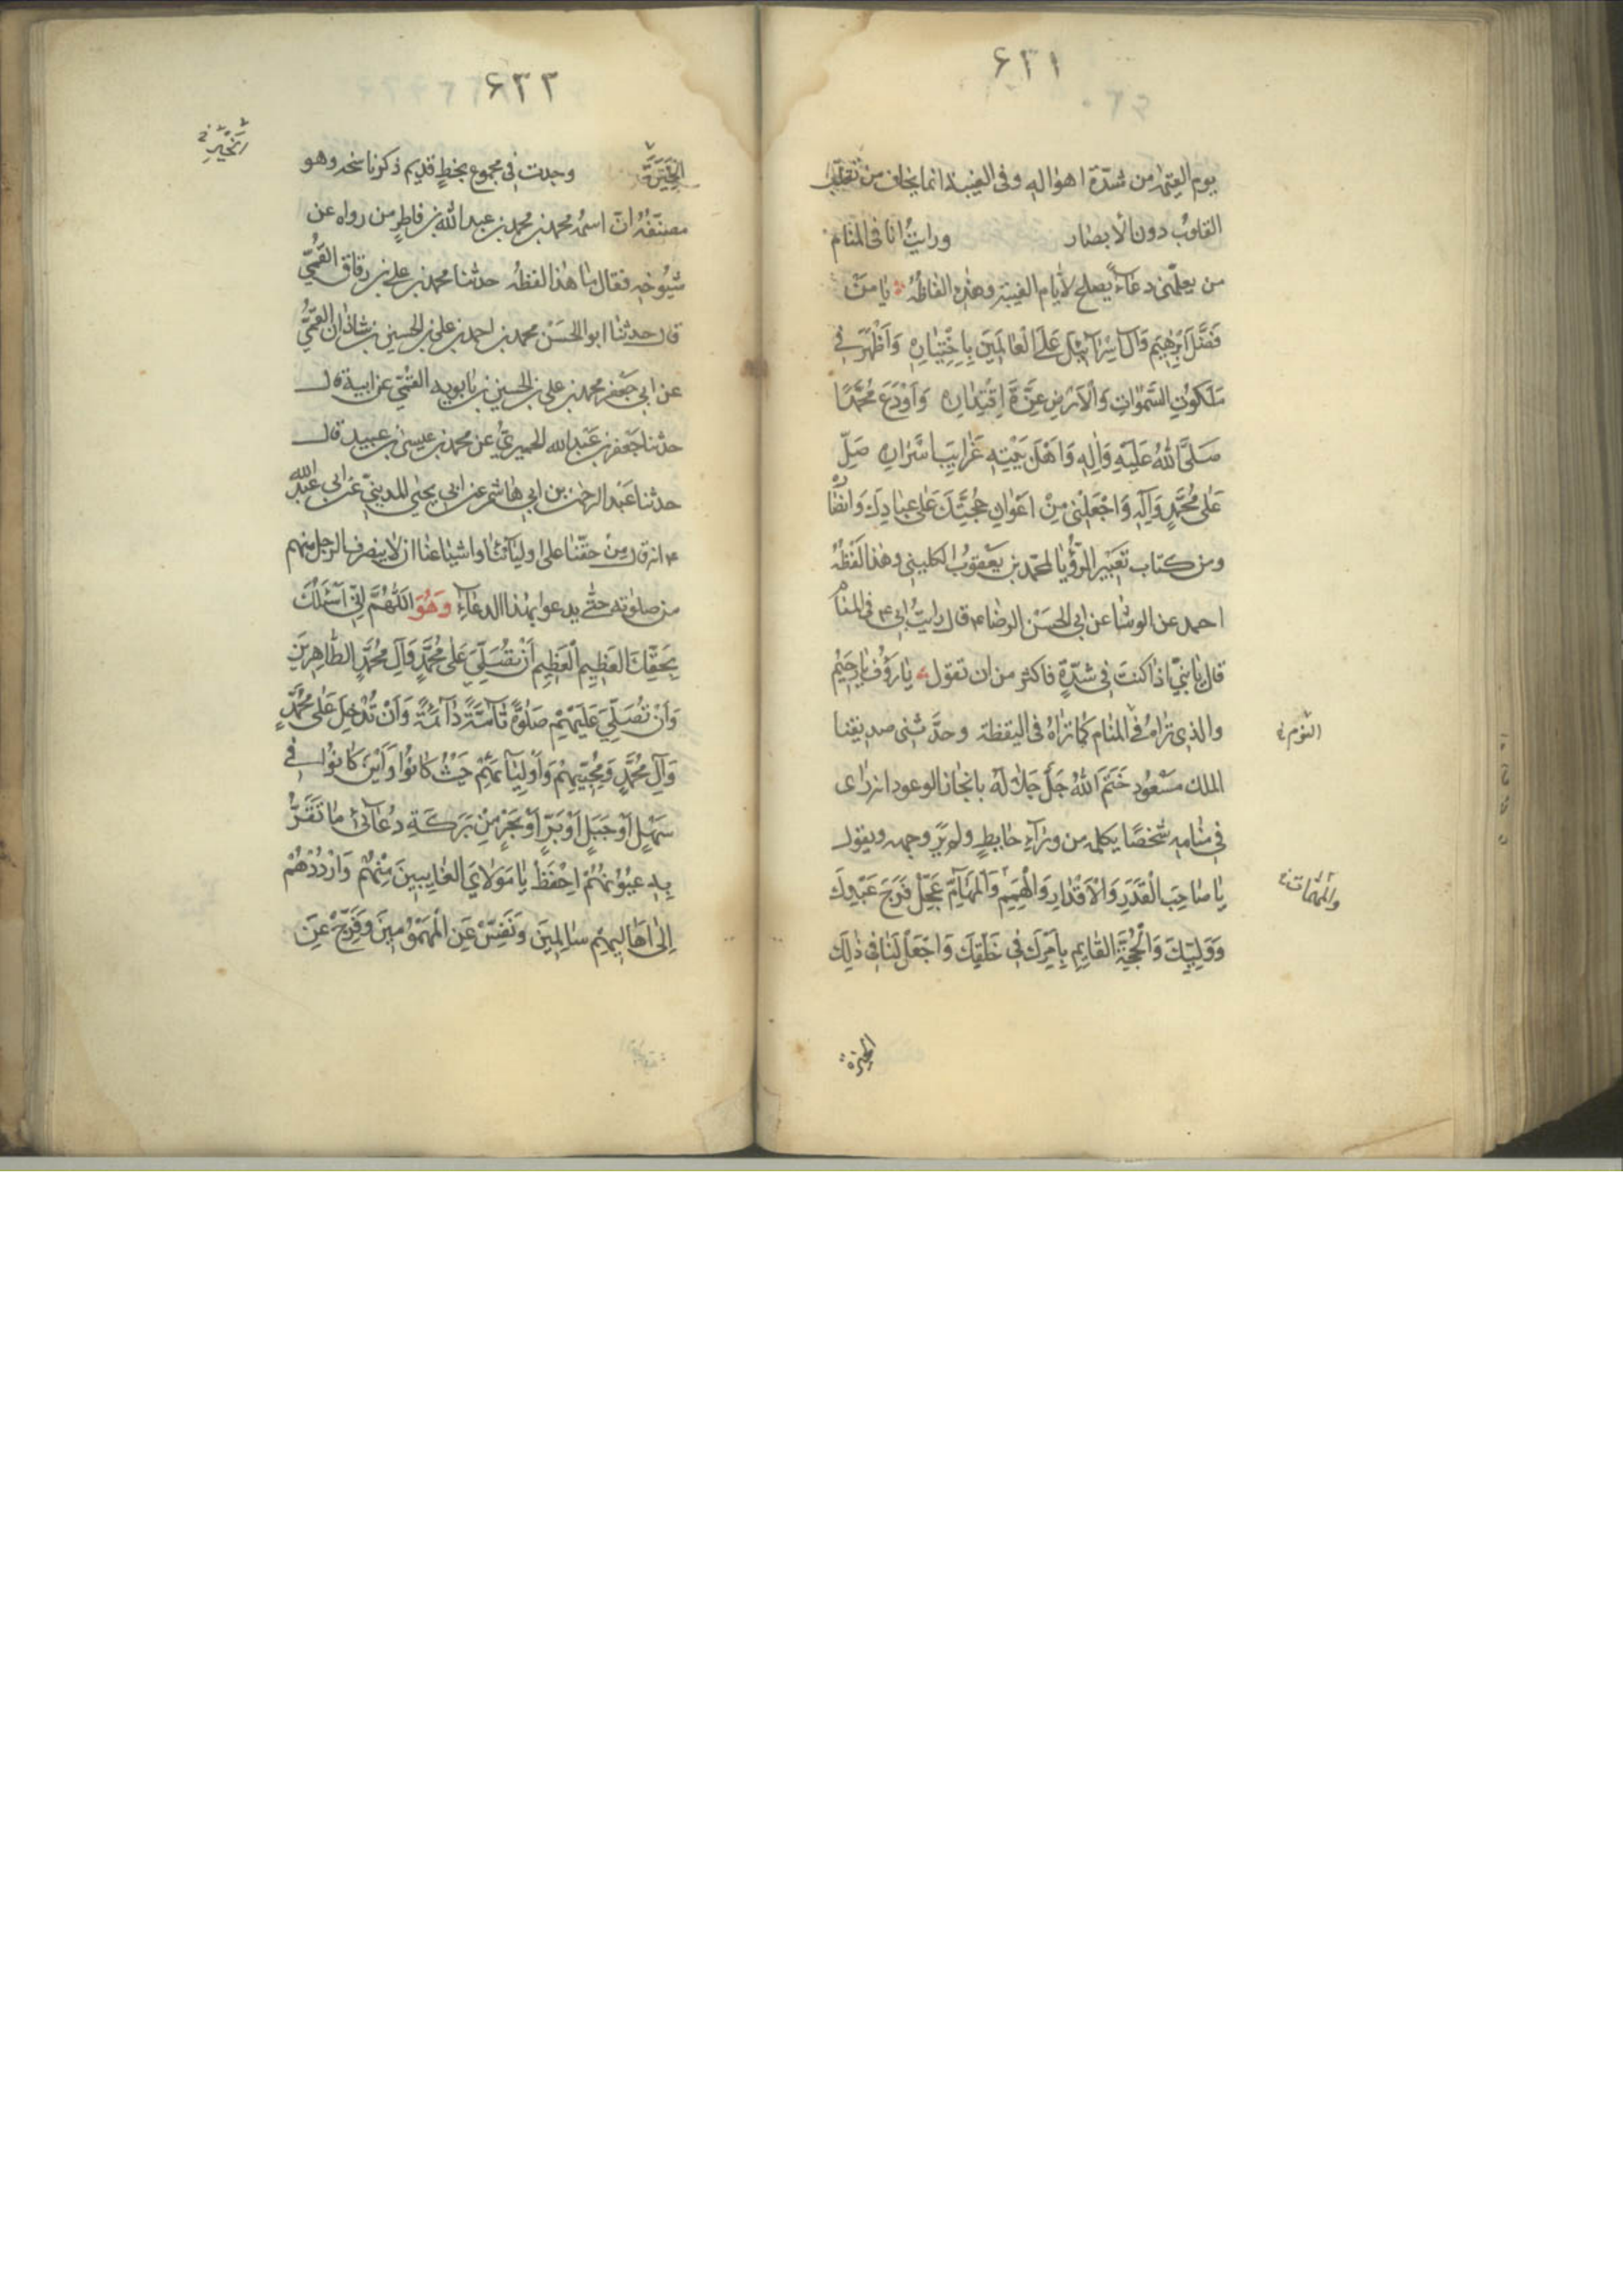 ۶۳۱
يوم القيمة من شدّة اهواله وفى الغيبة انما يخاف من تقلب
القلوب دون الأبصار ورايت انا فى المنام
من يعلّمنى دعاءً يصلح لأيام الغيبة وهذه الفاظه يا مَنْ
فَضَّلَ اِبْرٰهِيمَ وَآلَ اِسْرٰآئيلَ عَلَى الْعٰالَمِينَ بِاخْتِيٰارِهِ وَاَظْهَرَ فى
مَلَكُوتِ السَّمٰوٰاتِ وَالْاَرْضِ عِزَّةَ اِقْتِدٰارِهِ وَاَوْدَعَ مُحَمَّدًا
صَلَّى اللهُ عَلَيْهِ وَآلِهِ وَاَهْلَ بَيْتِهِ غَرٰايِبَ اَسْرٰارِهِ صَلِّ
عَلٰى مُحَمَّدٍ وَآلِهِ وَاجْعَلْنى مِنْ اَعْوٰانِ حُجَّتِكَ عَلٰى عِبٰادِكَ وَاَنْصٰارِهِ
ومن كتاب تعبير الرؤيا لمحمّد بن يعقوب الكلينى وهذا لفظه
احمد عن الوشا عن ابى الحسن الرضا ء قال رايت ابى ء فى المنام
قال يا بنىّ اذا كنت فى شدّةٍ فاكثر من ان تقول يا رَؤُفُ يا رَحِيمُ
والذى تراه فى المنام كما تراه فى اليقظة وحدّثنى صديقنا
النوم
الملك مسعود ختم الله جلّ جلاله له بانجاز الوعود انه راى
فى منامه شخصًا يكلمه من وراء حايطٍ ولم ير وجهه ويقول
يٰا صٰاحِبَ الْقَدَرِ وَالْاَقْدٰارِ وَالْهِمَمِ وَالْمَهٰآمِّ عَجِّلْ فَرَجَ عَبْدِكَ
والمهمات
وَوَلِيِّكَ وَالْحُجَّةِ الْقٰايِمِ بِاَمْرِكَ فى خَلْقِكَ وَاجْعَلْ لَنٰا فى ذٰلِكَ
الخيرة
۶۳۲
الْخِيَرَةَ وجدت فى مجموع بخطٍ قديم ذكر ناسخه وهو
مصنّفه انّ اسمه محمد بن محمد بن عبد الله بن فاطر من رواه عن
شيوخه فقال ما هذا لفظه حدثنا محمد بن على بن رقاق القمّى
قال حدثنا ابو الحسن محمد بن احمد بن على بن الحسين بن شاذان القمّى
عن ابى جعفر محمد بن على بن الحسين بن بابويه القمّى عن ابيه قال
حدثنا جعفر بن عبد الله الحميرى عن محمد بن عيسى بن عبيد قال
حدثنا عبد الرحمن بن ابى هاشم عن ابى يحيى المدينى عن ابى عبد الله
ء انه قال من حقّنا على اوليآئنا واشياعنا ان لا ينصرف الرجل منهم
من صلوته حتّى يدعو بهذا الدعاء وَهُوَ اَللّٰهُمَّ اِنّى اَسْئَلُكَ
بِحَقِّكَ الْعَظِيمِ الْعَظِيمِ اَنْ تُصَلِّىَ عَلٰى مُحَمَّدٍ وَآلِ مُحَمَّدٍ الطّٰاهِرِينَ
وَاَنْ تُصَلِّىَ عَلَيْهِمْ صَلٰوةً تٰآمَّةً دٰآئِمَةً وَاَنْ تُدْخِلَ عَلٰى مُحَمَّدٍ
وَآلِ مُحَمَّدٍ وَمُحِبِّيهِمْ وَاَوْلِيٰآئِهِمْ حَيْثُ كٰانُوا وَاَيْنَ كٰانُوا فى
سَهْلٍ اَوْ جَبَلٍ اَوْ بَرٍّ اَوْ بَحْرٍ مِنْ بَرَكَةِ دُعٰآئى مٰا تَقَرُّ
بِهِ عُيُونُهُمْ اِحْفَظْ يٰا مَوْلٰاىَ الْغٰايِبِينَ مِنْهُمْ وَارْدُدْهُمْ
اِلٰى اَهٰالِيهِمْ سٰالِمِينَ وَنَفِّسْ عَنِ الْمَهْمُومِينَ وَفَرِّجْ عَنِ